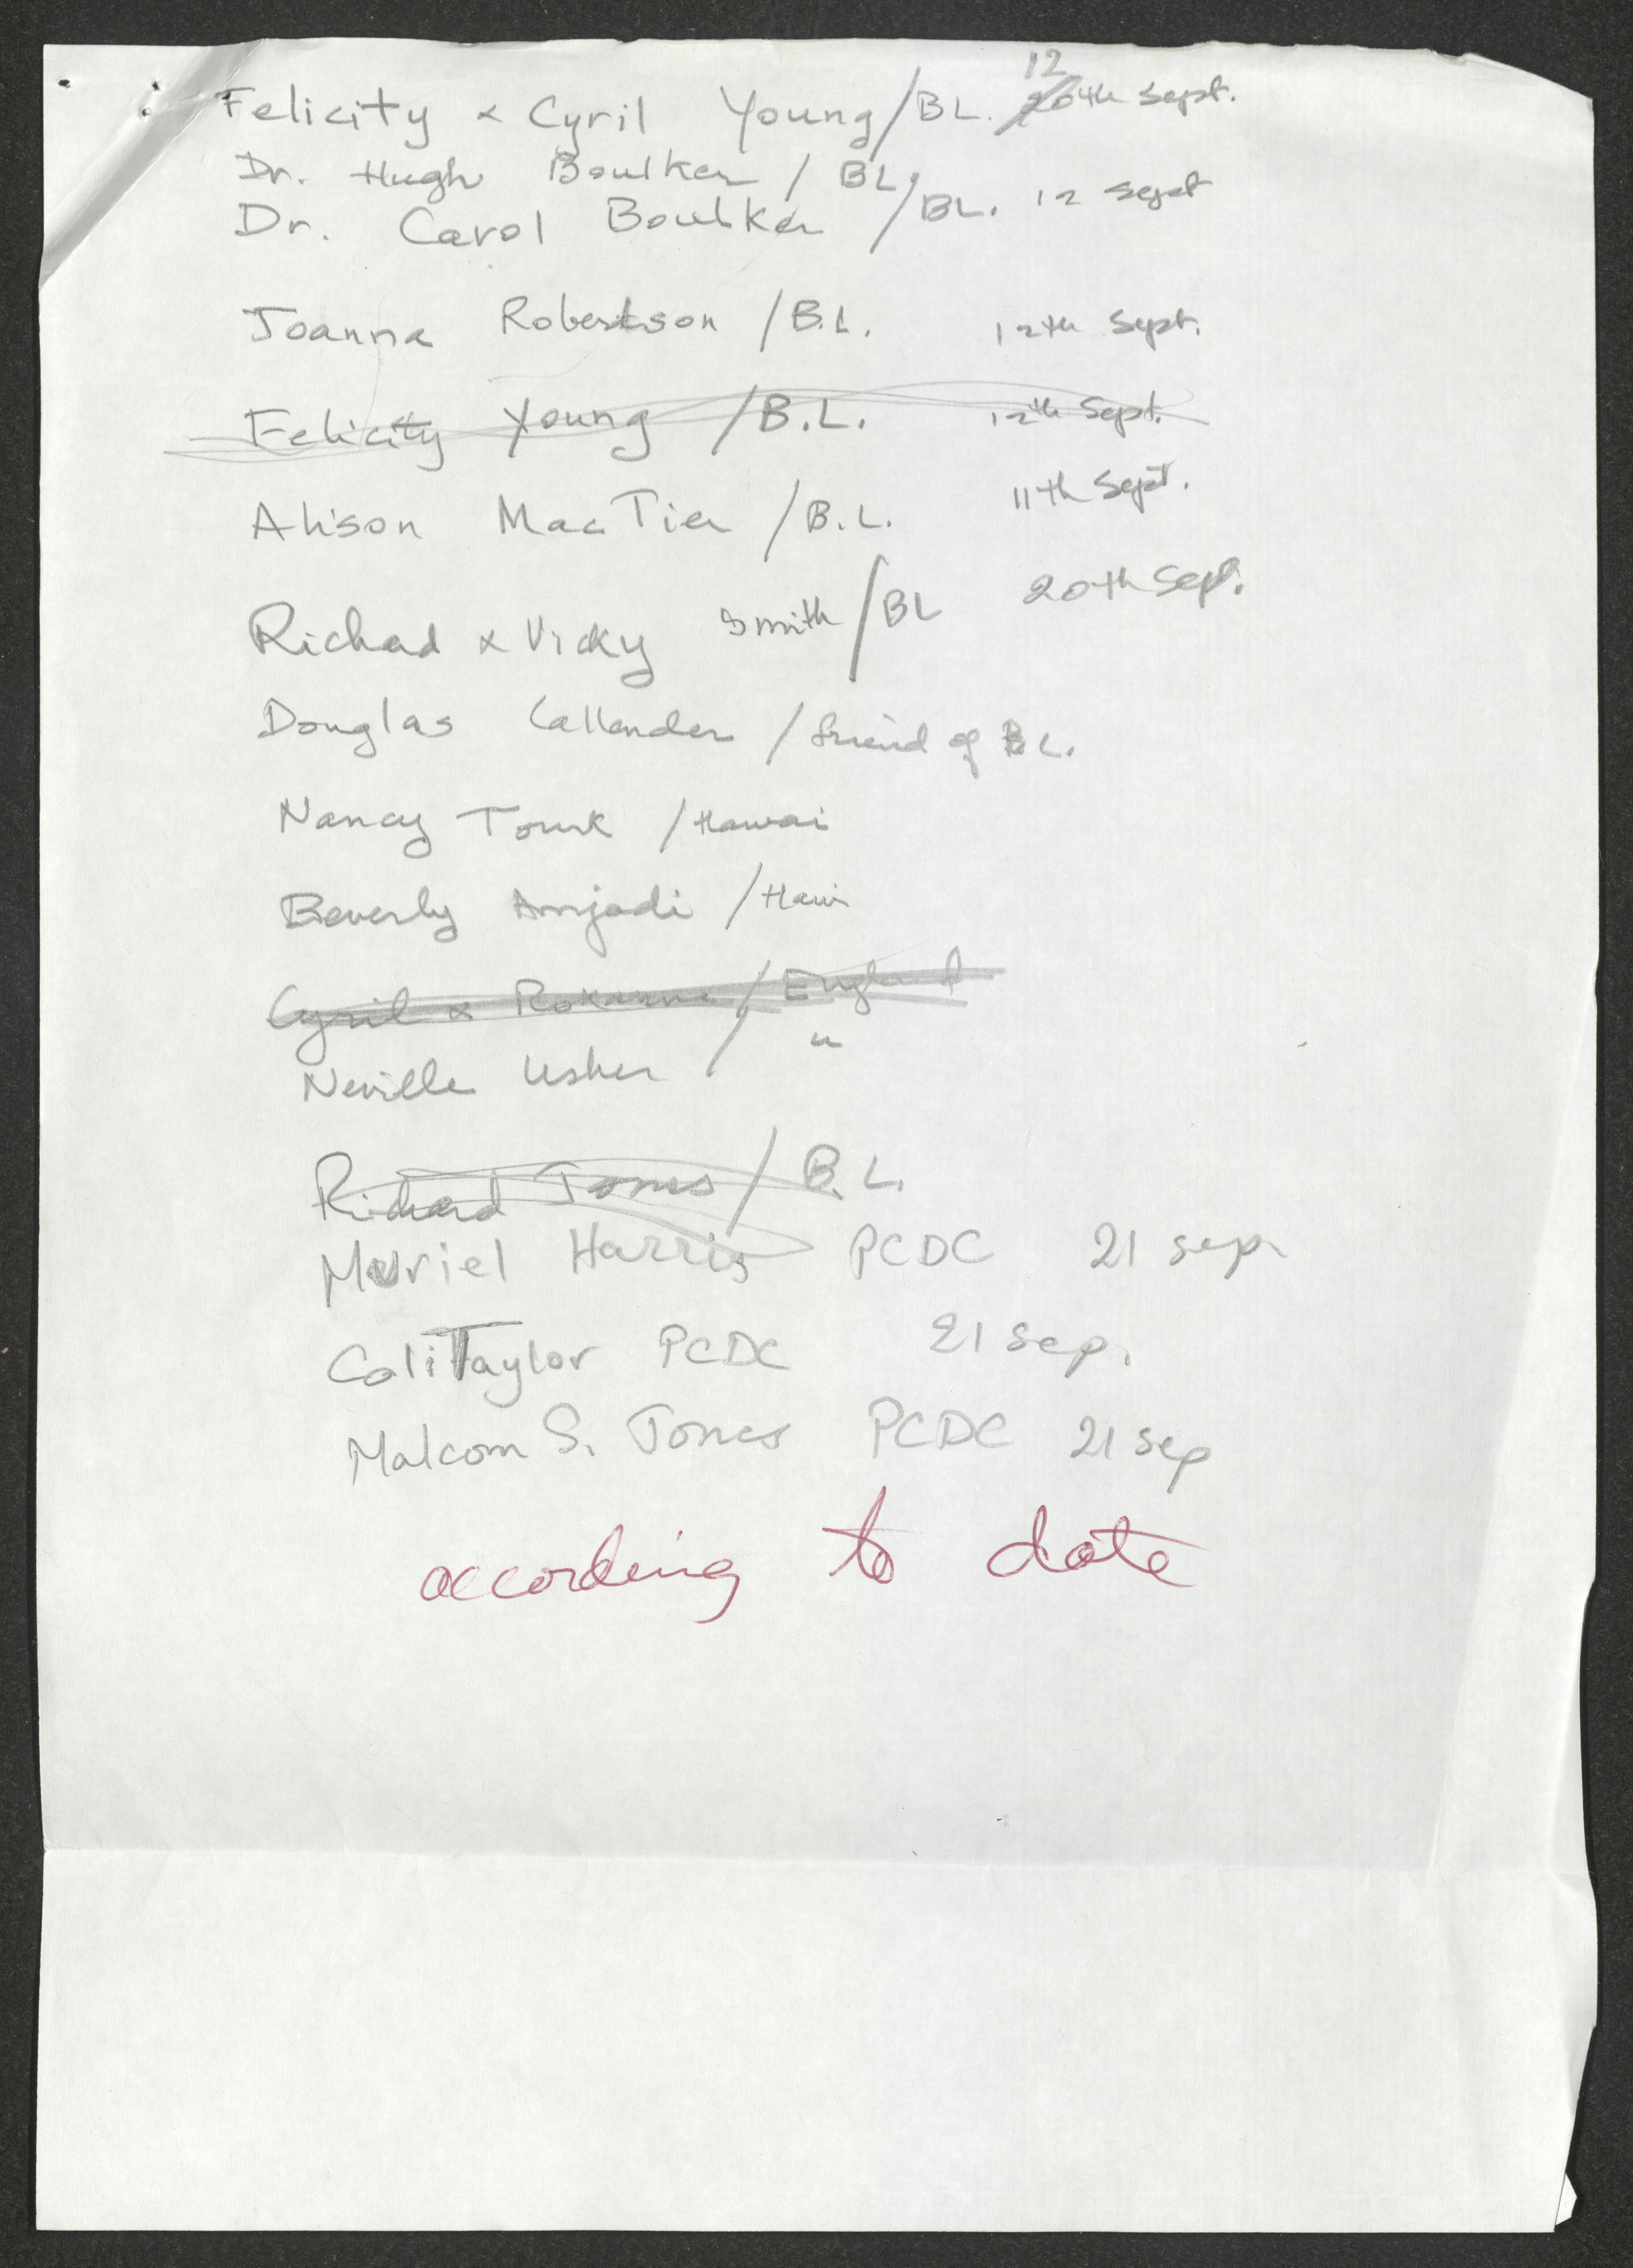 Felicity & Cyril Young/BL. 12 20th Sept.
Dr. Hugh Boulker / BL.
Dr. Carol Boulker /BL. 12 Sept
Joanna Robertson /B.L. 12th Sept.
Felicity Young /B.L. 12th Sept.
Alison MacTier /B.L. 11th Sept.
Richard & Vicky Smith /BL 20th Sept.
Douglas Callender / friend of BL.
Nancy Tourk /Hawai
Beverly Amjadi /Hawi
Cyril & Roxanne / England
Neville Usher / "
Richard Jones / B.L.
Muriel Harris PCDC 21 sep.
Coli Taylor PCDC 21 sep.
Malcom S. Jones PCDC 21 sep
according to date